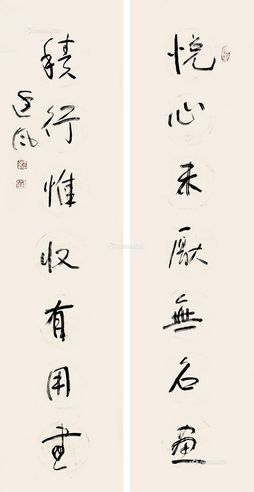 悦心未厭無名畫
積行惟收有用書